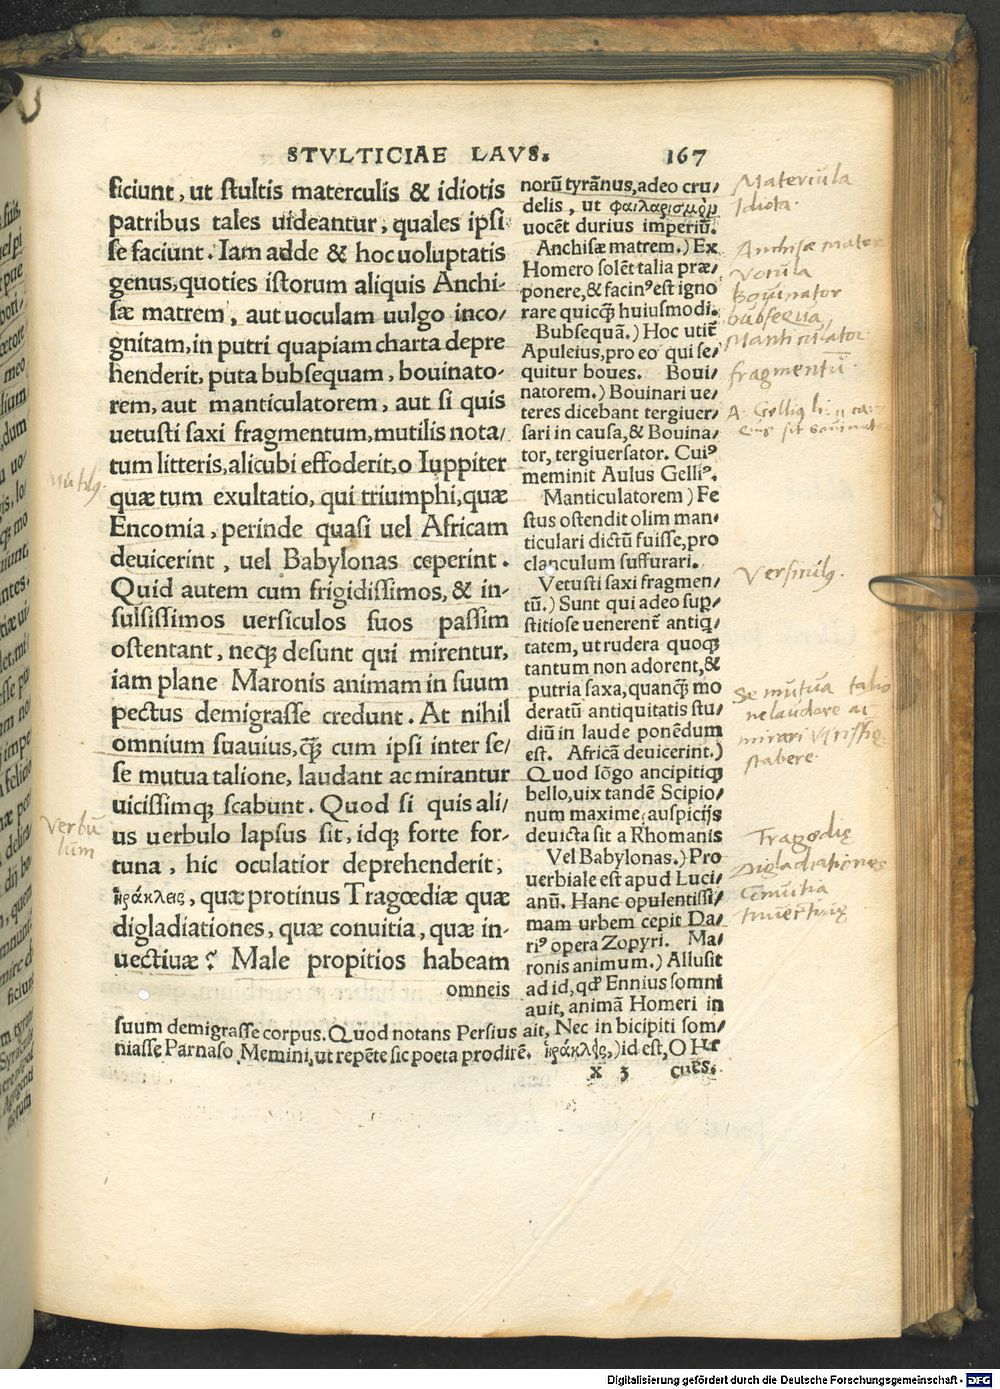 STVLTICIAE LAVS. 167
ficiunt, ut stultis materculis & idiotis
patribus tales uideantur, quales ipsi
se faciunt. Iam adde & hoc uoluptatis
genus, quoties istorum aliquis Anchi-
sæ matrem, aut uoculam uulgo inco/
gnitam, in putri quapiam charta depre
henderit, puta bubsequam, bouinato-
rem, aut manticulatorem, aut si quis
uetusti saxi fragmentum, mutilis nota/
tum litteris, alicubi effoderit, o Iuppiter
quæ tum exultatio, qui triumphi, quæ
Encomia, perinde quasi uel Africam
deuicerint, uel Babylonas ceperint.
Quid autem cum frigidissimos, & in-
sulsissimos uersiculos suos passim
ostentant, neqꝫ desunt qui mirentur,
iam plane Maronis animam in suum
pectus demigrasse credunt. At nihil
omnium suauius, q̃ꝫ cum ipsi inter se/
se mutua talione, laudant ac mirantur
uicissimqꝫ scabunt. Quod si quis ali/
us uerbulo lapsus sit, idqꝫ forte for-
tuna, hic oculatior deprehenderit,
ἡράκλεις, quæ protinus Tragœdiæ quæ
digladiationes, quæ conuitia, quæ in-
uectiuæ? Male propitios habeam
omneis
norũ tyrãnus, adeo cru/
delis, ut φαιλαρισμὸμ
uocẽt durius imperiũ.
Anchisæ matrem.) Ex
Homero solẽt talia præ/
ponere, & facinꝰ est igno
rare quicq̃ huiusmodi.
Bubsequã.) Hoc utiť
Apuleius, pro eo qui se/
quitur boues. Boui/
natorem.) Bouinari ue/
teres dicebant tergiuer/
sari in causa, & Bouina/
tor, tergiuersator. Cuiꝰ
meminit Aulus Gelliꝰ.
Manticulatorem) Fe
stus ostendit olim man/
ticulari dictũ fuisse, pro
clanculum suffurari.
Vetusti saxi fragmen/
tũ.) Sunt qui adeo sup/
stitiose uenerenť antiq/
tatem, ut rudera quoqꝫ
tantum non adorent, &
putria saxa, quanq̃ꝫ mo
deratũ antiquitatis stu/
diũ in laude ponẽdum
est. Africã deuicerint.)
Quod lõgo ancipitiqꝫ
bello, uix tandẽ Scipio/
num maxime, auspicijs
deuicta sit a Rhomanis
Vel Babylonas.) Pro
uerbiale est apud Luci/
anũ. Hanc opulentissi/
mam urbem cepit Da/
riꝰ opera Zopyri. Ma/
ronis animum.) Allusit
ad id, qđ Ennius somni
auit, animã Homeri in
suum demigrasse corpus. Quod notans Persius ait, Nec in bicipiti som/
niasse Parnaso. Memini, ut repẽte sic poeta prodirẽ. ἡράκλεις,) id est, O Her
x 3 cues.
Matercula
Idiota.
Anchisæ mater
Vocula
Bouinator
bubsequa
Manticulator
fragmentũ
A. Gelliꝰ li. 11
Mutilꝰ.
Versiculꝰ.
Se mutua talio
ne laudare ac
mirari
scabere.
Verbu
lum
Tragœdię
Digladiationes
Conuitia
Inuectiuę
Digitalisierung gefördert durch die Deutsche Forschungsgemeinschaft - DFG